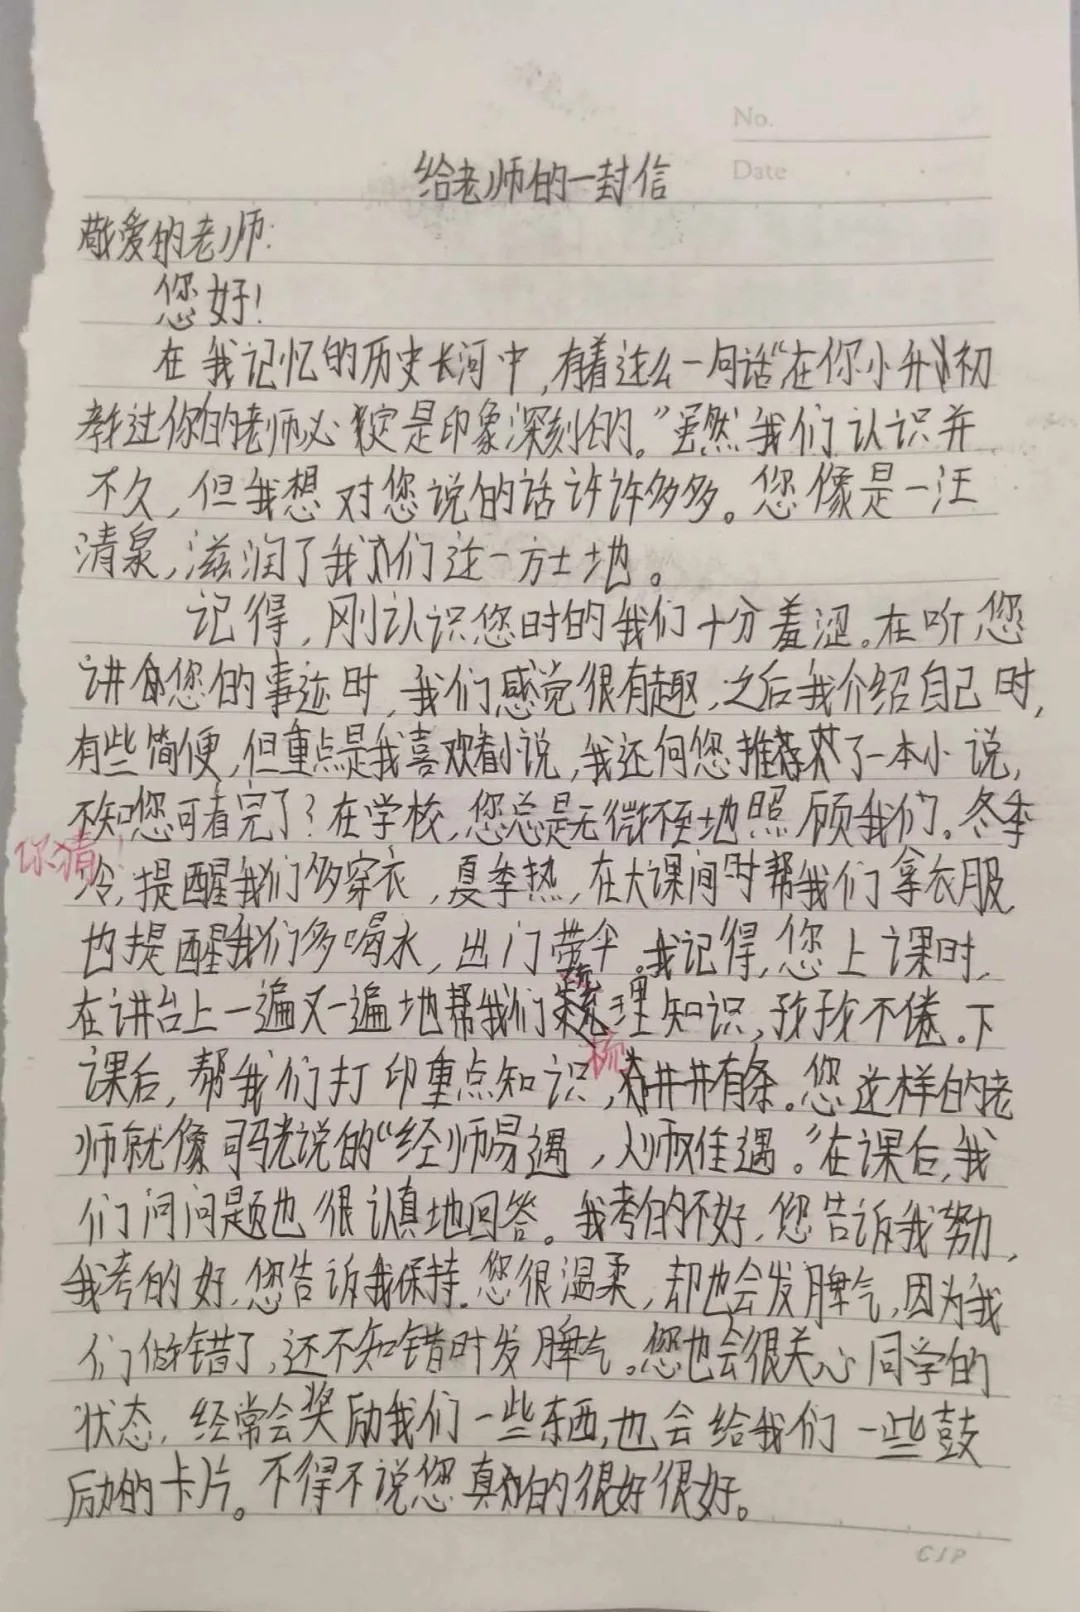 No.
Date
给老师的一封信
敬爱的老师:
您好!
在我记忆的历史长河中,有着这么一句话“在你小升初
教过你的老师必定是印象深刻的。”虽然我们认识并
不久,但我想对您说的话许许多多。您像是一汪
清泉,滋润了我们这一方土地。
记得,刚认识您时的我们十分羞涩。在听您
讲您的事迹时,我们感觉很有趣,之后我介绍自己时,
有些简便,但重点是我喜欢看小说,我还向您推荐了一本小说,
不知您可看完了?在学校,您总是无微不至地照顾我们。冬季
你猜!
冷,提醒我们多穿衣,夏季热,在大课间时帮我们拿衣服
也提醒我们多喝水,出门带伞。我记得,您上课时,
在讲台上一遍又一遍地帮我们梳理知识,孜孜不倦。下
梳
课后,帮我们打印重点知识,井井有条。您这样的老
师就像司马光说的“经师易遇,人师难遇。”在课后,我
们问问题也很认真地回答。我考的不好,您告诉我努力,
我考的好,您告诉我保持。您很温柔,却也会发脾气,因为我
们做错了,还不知错时发脾气。您也会很关心同学的
状态,经常会奖励我们一些东西,也会给我们一些鼓
励的卡片。不得不说您真的很好很好。
CJP